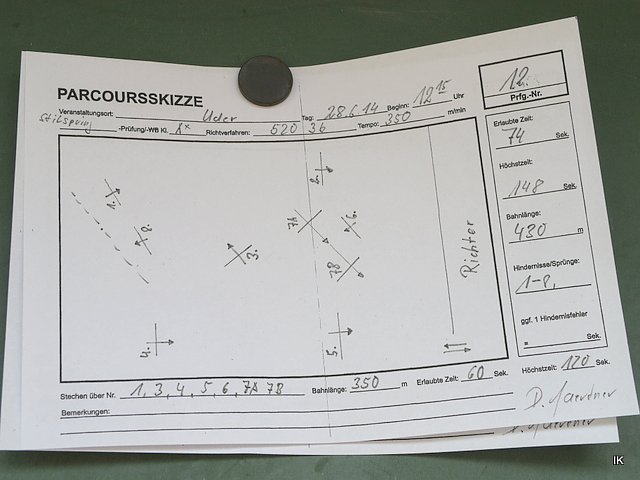 PARCOURSSKIZZE
12.
Prfg.-Nr.
Veranstaltungsort: Uder Tag: 28.6.14 Beginn: 12 15 Uhr
Stilspring -Prüfung/-WB Kl. A* Richtverfahren: 520 36 Tempo: 350 m/min
Erlaubte Zeit:
74 Sek.
Höchstzeit:
148 Sek.
Bahnlänge:
430 m
Hindernisse/Sprünge:
1-8,
ggf. 1 Hindernisfehler
= Sek.
Höchstzeit: 120 Sek.
1.
2.
8.
7A
6.
3.
7B
4.
5.
Richter
Stechen über Nr. 1, 3, 4, 5, 6, 7A 7B Bahnlänge: 350 m Erlaubte Zeit: 60 Sek.
Bemerkungen:
IK